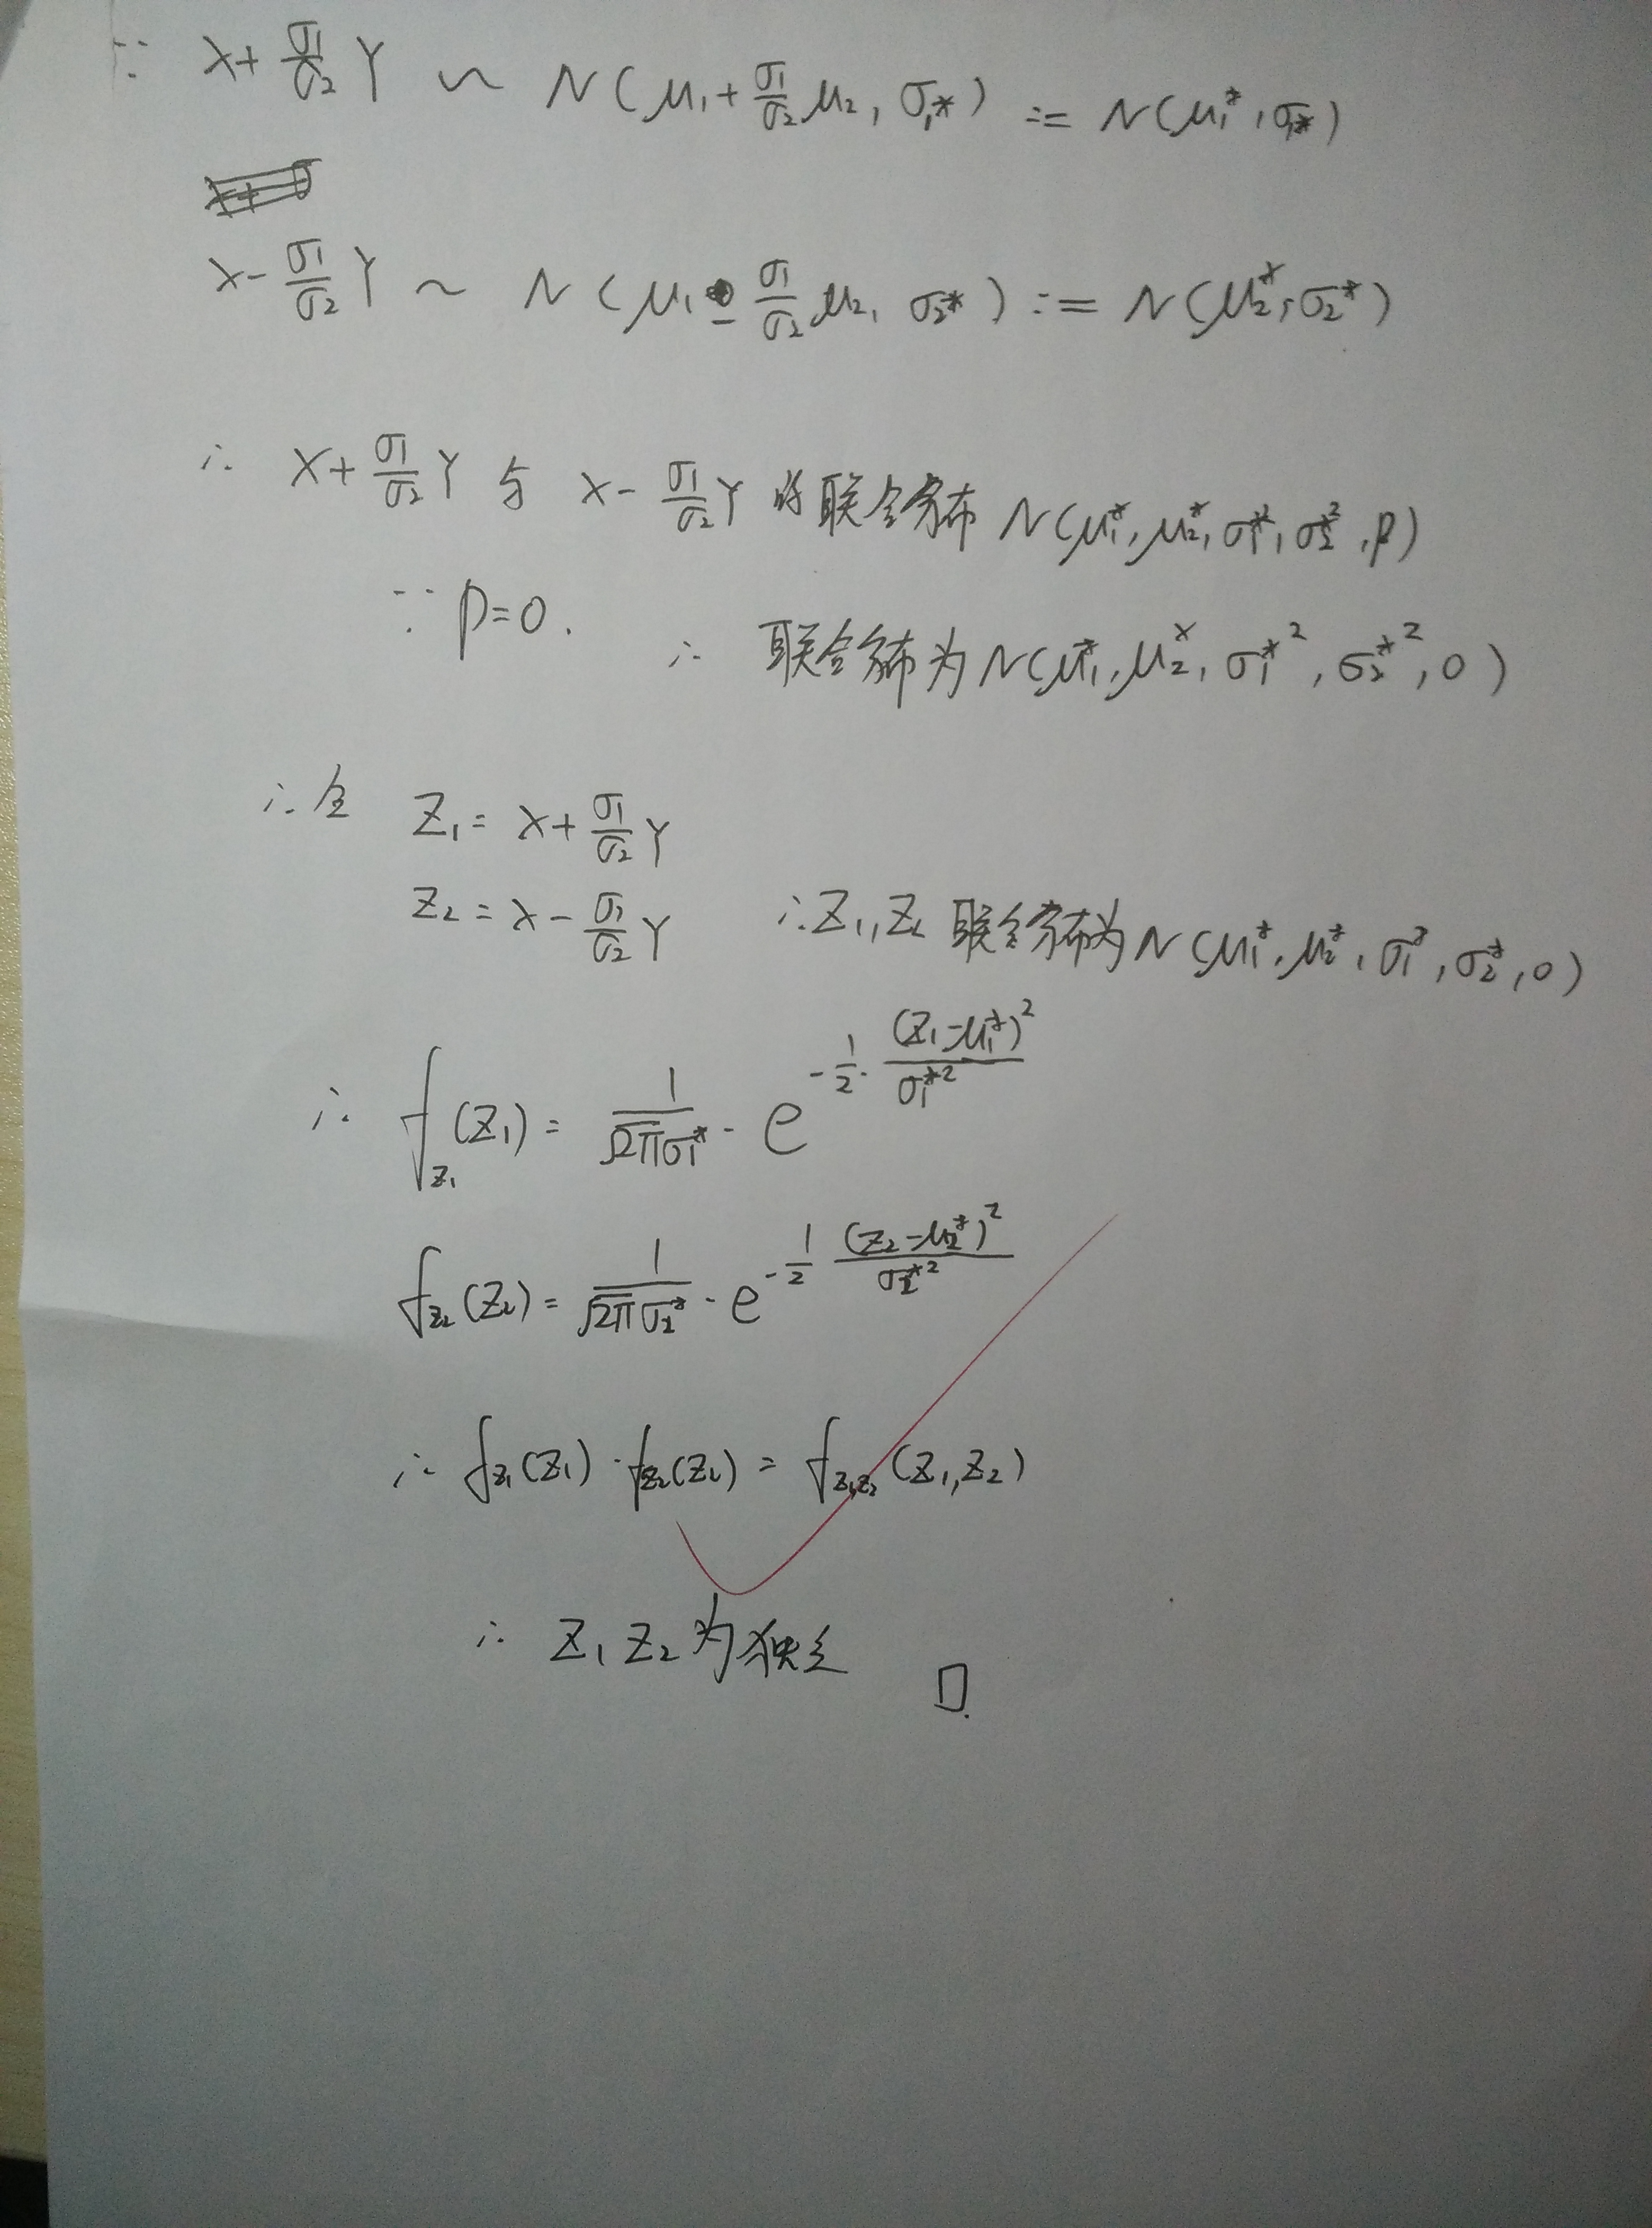 ∵ X+σ₁/σ₂ Y ~ N(μ₁+σ₁/σ₂ μ₂, σ₁*) := N(μ₁*, σ₁*)
X-σ₁/σ₂ Y ~ N(μ₁-σ₁/σ₂ μ₂, σ₂*) := N(μ₂*, σ₂*)
∴ X+σ₁/σ₂ Y 与 X-σ₁/σ₂ Y 的联合分布 N(μ₁*, μ₂*, σ₁*², σ₂*², ρ)
∵ ρ=0. ∴ 联合分布为N(μ₁*, μ₂*, σ₁*², σ₂*², 0)
∴ 令 Z₁ = X+σ₁/σ₂ Y
Z₂ = X-σ₁/σ₂ Y ∴ Z₁, Z₂ 联合分布为 N(μ₁*, μ₂*, σ₁*, σ₂*, 0)
∴ f_{Z₁}(Z₁) = 1/(√2π σ₁*) · e^{-1/2 · (Z₁-μ₁*)²/σ₁*²}
f_{Z₂}(Z₂) = 1/(√2π σ₂*) · e^{-1/2 (Z₂-μ₂*)²/σ₂*²}
∴ f_{Z₁}(Z₁) · f_{Z₂}(Z₂) = f_{Z₁,Z₂}(Z₁, Z₂)
∴ Z₁ Z₂ 为独立 □.